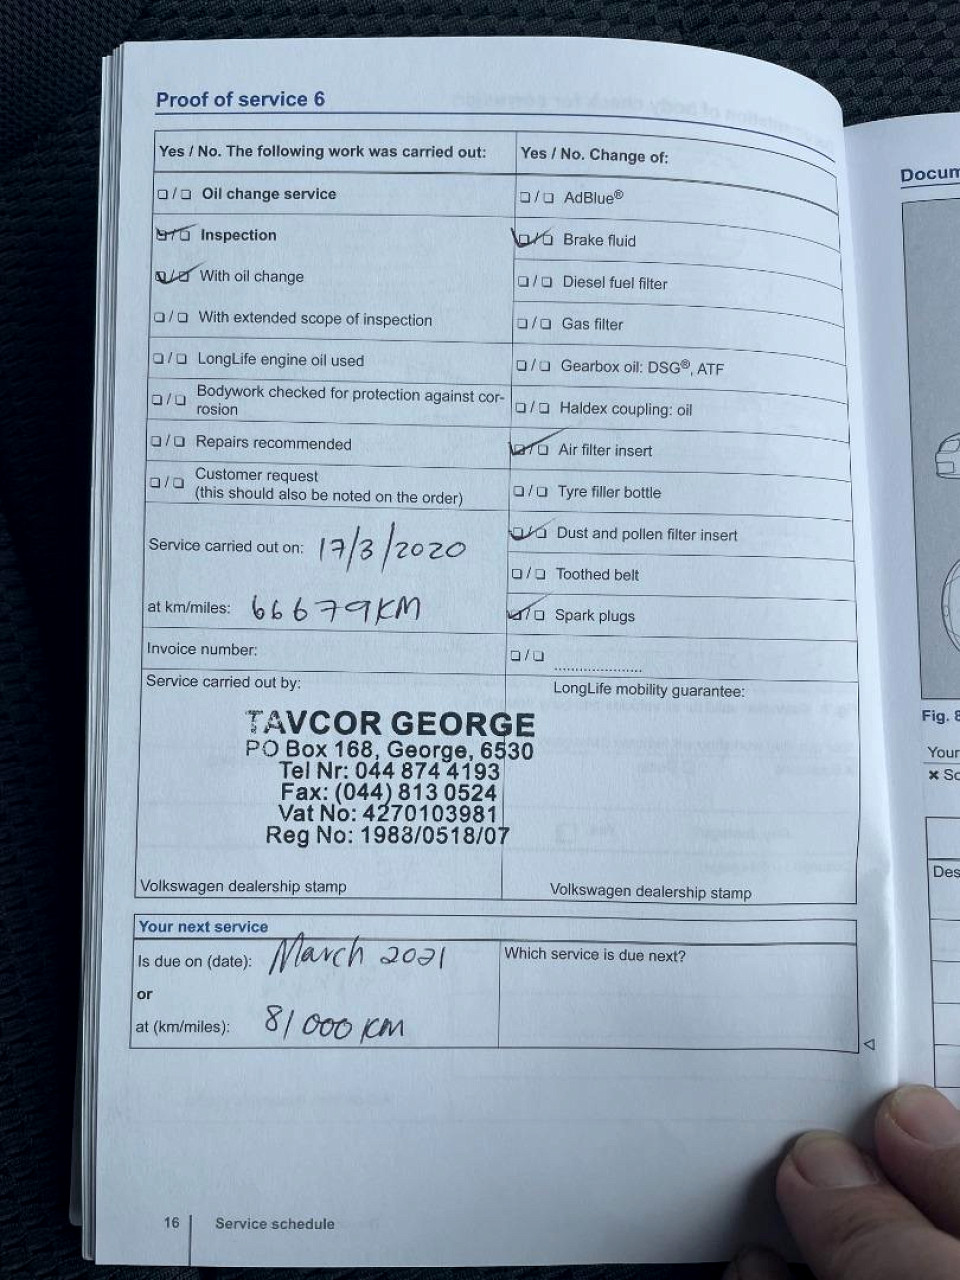 Proof of service 6
Yes / No. The following work was carried out:
❏ / ❏ Oil change service
❏ / ❏ Inspection
❏ / ❏ With oil change
❏ / ❏ With extended scope of inspection
❏ / ❏ LongLife engine oil used
❏ / ❏ Bodywork checked for protection against cor-
rosion
❏ / ❏ Repairs recommended
❏ / ❏ Customer request
(this should also be noted on the order)
Service carried out on: 17/3/2020
at km/miles: 66679KM
Invoice number:
Service carried out by:
TAVCOR GEORGE
PO Box 168, George, 6530
Tel Nr: 044 874 4193
Fax: (044) 813 0524
Vat No: 4270103981
Reg No: 1983/0518/07
Volkswagen dealership stamp
Yes / No. Change of:
❏ / ❏ AdBlue®
❏ / ❏ Brake fluid
❏ / ❏ Diesel fuel filter
❏ / ❏ Gas filter
❏ / ❏ Gearbox oil: DSG®, ATF
❏ / ❏ Haldex coupling: oil
❏ / ❏ Air filter insert
❏ / ❏ Tyre filler bottle
❏ / ❏ Dust and pollen filter insert
❏ / ❏ Toothed belt
❏ / ❏ Spark plugs
❏ / ❏ .....................
LongLife mobility guarantee:
Volkswagen dealership stamp
Your next service
Is due on (date): March 2021
or
at (km/miles): 81000 KM
Which service is due next?
16 Service schedule
Docum
Fig. 8
Your
Des